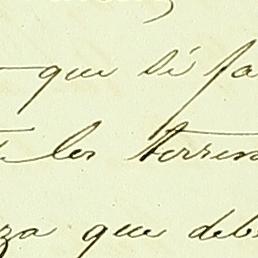 que si fa
los terren
za que deb